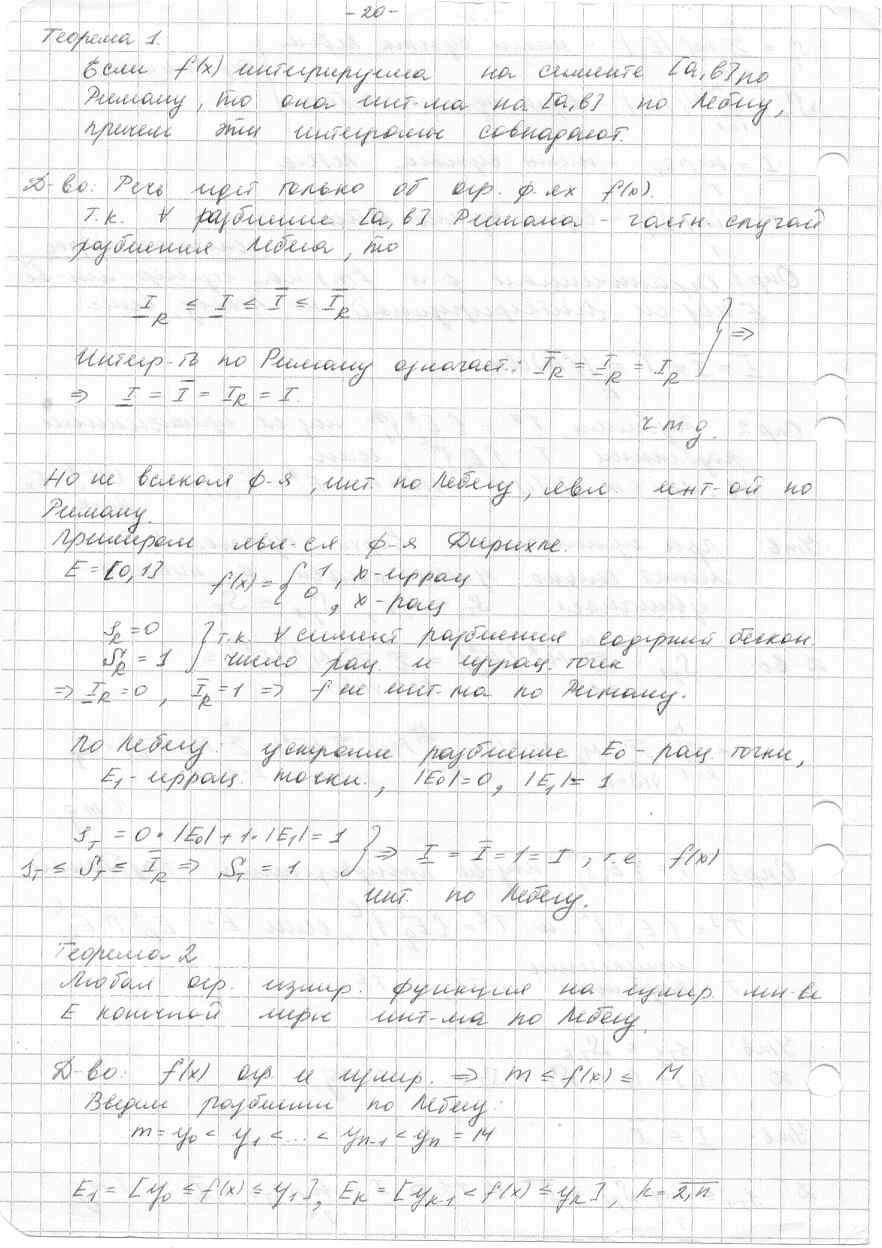 -20-
Теорема 1.
Если f(x) интегрируема на сегменте [a,b] по
Риману, то она инт-ма на [a,b] по Лебегу,
причем эти интегралы совпадают.
Д-во: Речь идет только об огр. ф-ях f(x).
Т.к. ∀ разбиение [a,b] Римана - частн. случай
разбиения Лебега, то
I̲_R ≤ I̲ ≤ I̅ ≤ I̅_R
Интегр-ть по Риману означает: I̅_R = I̲_R = I_R } =>
=> I̲ = I̅ = I_R = I.
ч.т.д.
Но не всякая ф-я, инт. по Лебегу, явл. инт-ой по
Риману.
Примером явл-ся ф-я Дирихле.
E = [0,1] f(x) = { 1, x-иррац
0, x-рац
s_R = 0 } т.к. ∀ сегмент разбиения содержит бескон.
S_R = 1 } число рац. и иррац. точек
=> I̲_R = 0, I̅_R = 1 => f не инт-ма по Риману.
По Лебегу: устроим разбиение E₀ - рац. точки,
E₁ - иррац. точки., |E₀| = 0, |E₁| = 1
s_T = 0·|E₀| + 1·|E₁| = 1
s_T ≤ S_T ≤ I̅_R => S_T = 1 } => I̲ = I̅ = 1 = I, т.е. f(x)
инт. по Лебегу.
Теорема 2
Любая огр. измер. функция на измер. мн-ве
E конечной меры инт-ма по Лебегу.
Д-во: f(x) огр. и измер. => m ≤ f(x) ≤ M
Введем разбиение по Лебегу:
m = y₀ < y₁ < ... < y_{n-1} < y_n = M
E₁ = [y₀ ≤ f(x) ≤ y₁], E_k = [y_{k-1} < f(x) ≤ y_k], k = 2,n